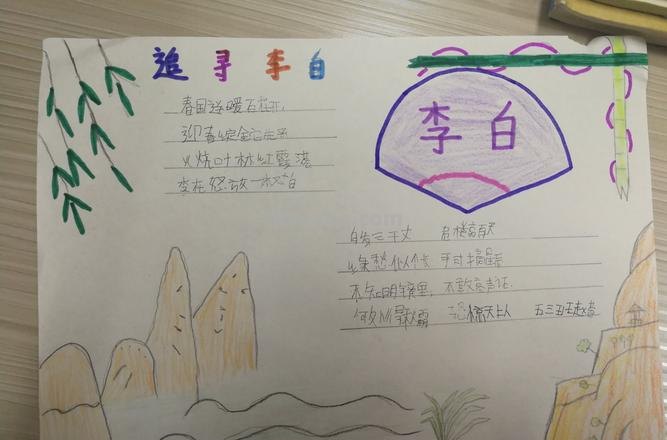 追寻李白
李白
春国送暖百花开
迎春绽金它先来
火烧叶林红霞落
李花怒放一树白
白发三千丈 危楼高百尺
缘愁似个长 手可摘星辰
不知明镜里 不敢高声语
何处得秋霜 恐惊天上人